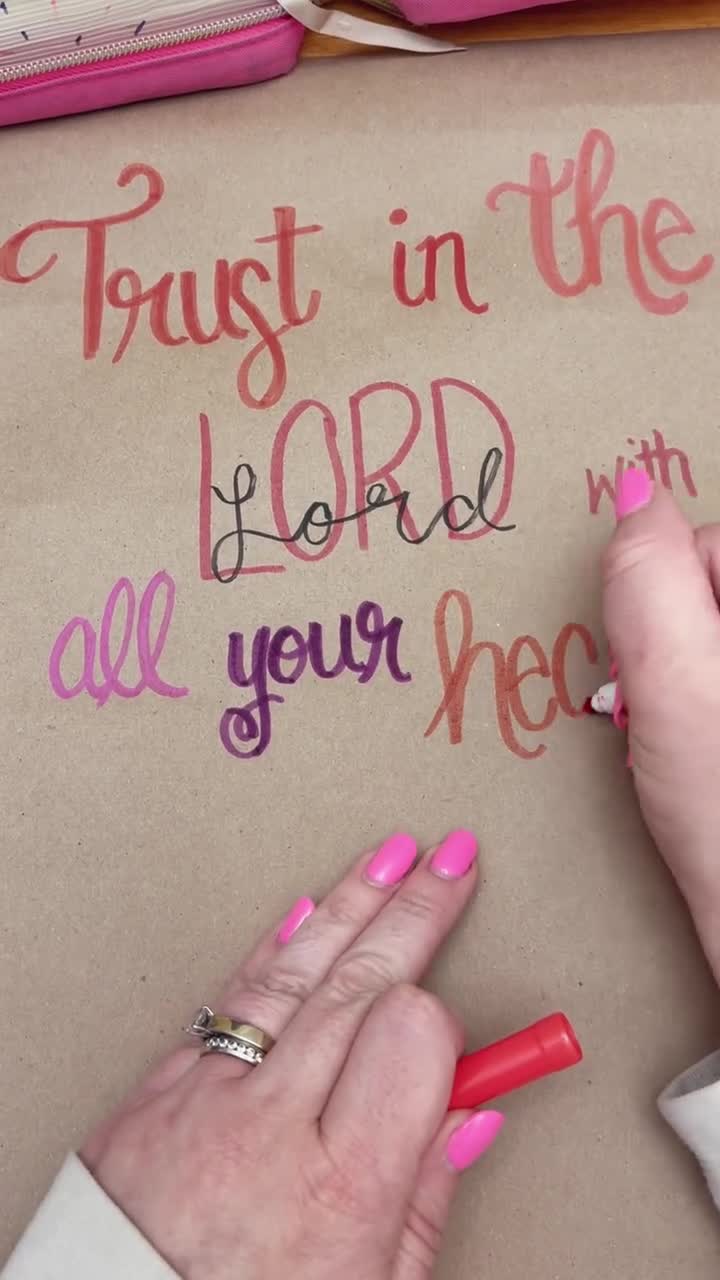 Trust in the
LORD
Lord with
all your hea